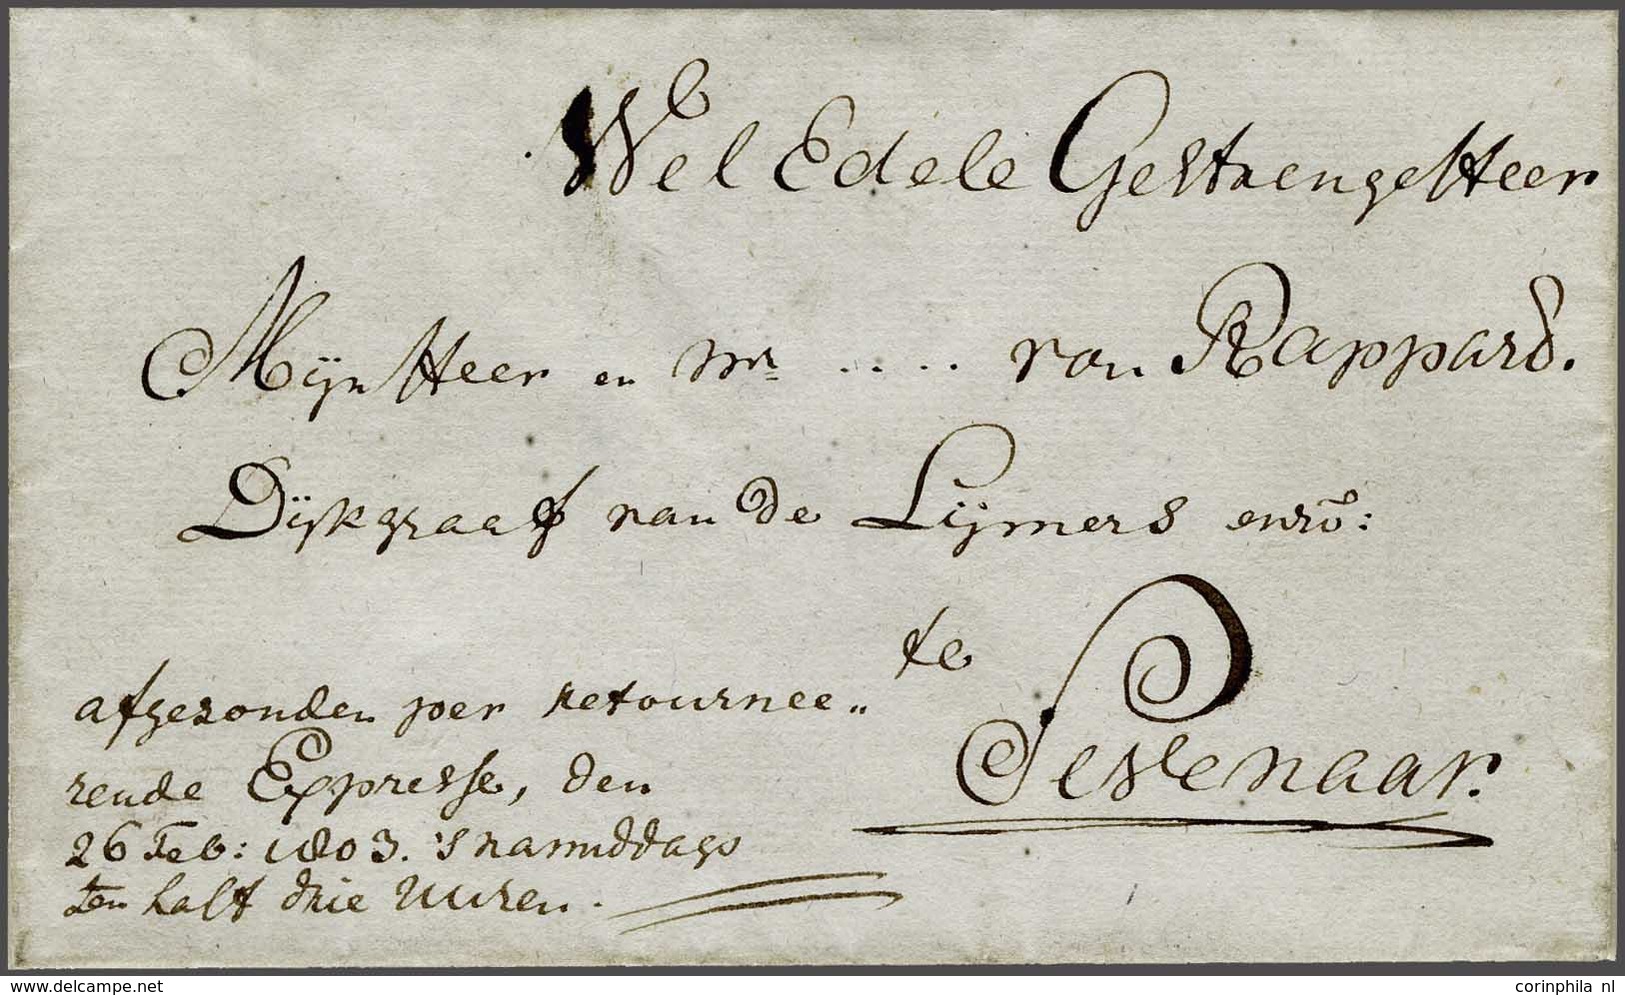 Wel Edele Gestrenge Heer
Mijn Heer en Mr .... van Rappard.
Dijkgraaf van de Lijmers enz:
te
Sevenaar.
afgezonden per retournee„
rende Expresse, den
26 Feb: 1803. 's namiddags
ten half drie Uuren.
www.delcampe.net
corinphila nl